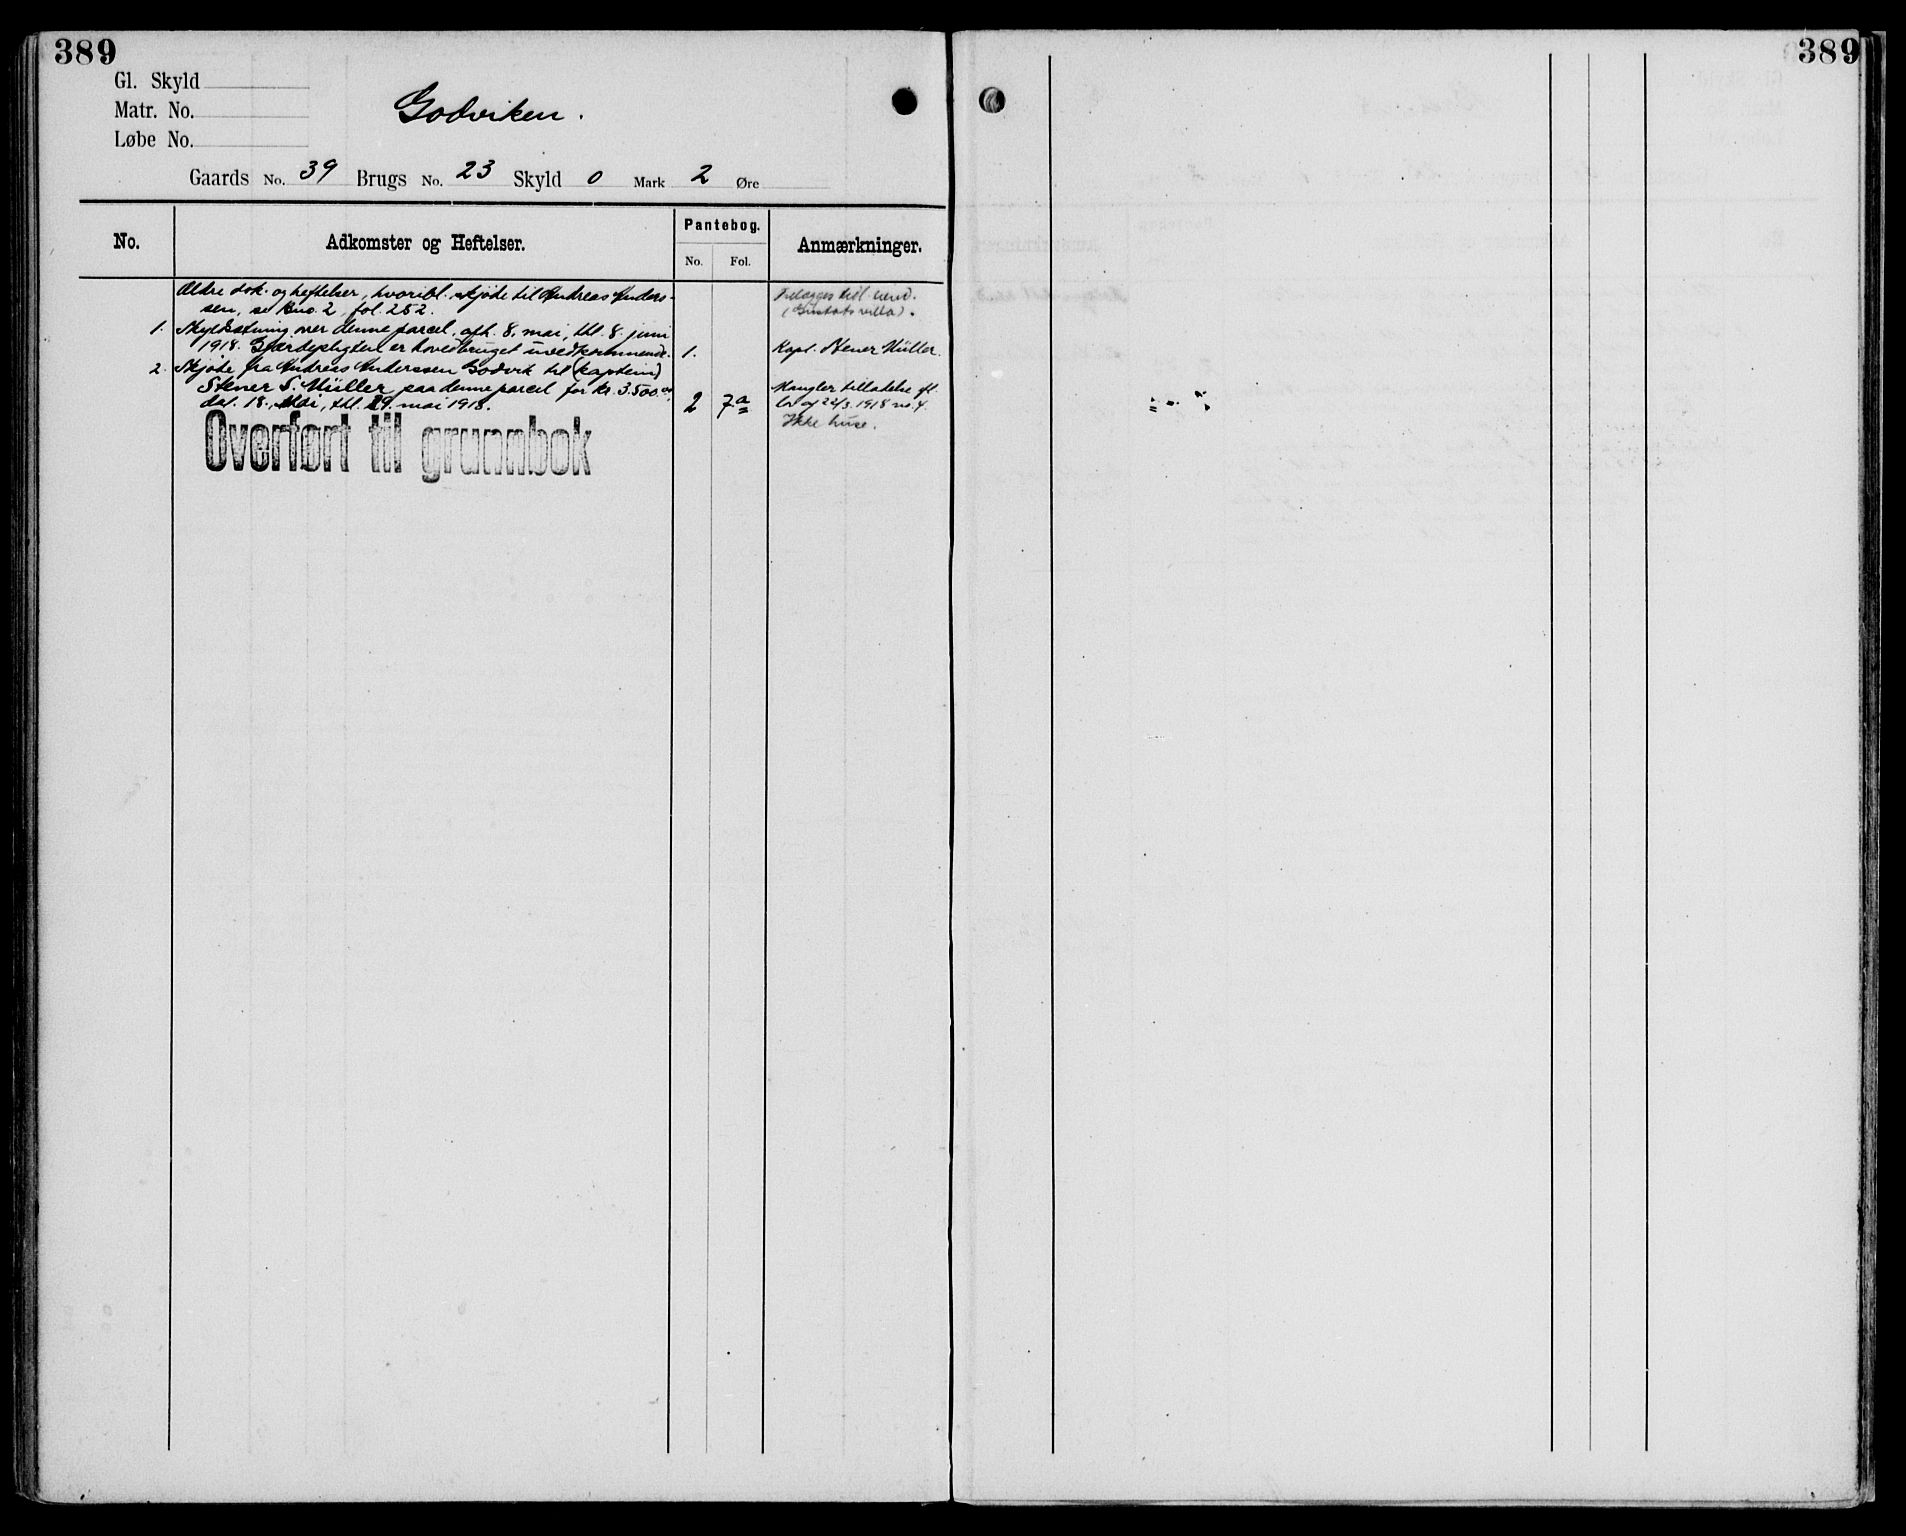 389
389
Gl. Skyld
Matr. No.
Løbe No.
Godviken.
Gaards No. 39 Brugs No. 23 Skyld 0 Mark 2 Øre
No.
Adkomster og Heftelser.
Pantebog.
No. Fol.
Anmærkninger.
Ældre dok. og heftelser, hvoribl. skjøde til Andreas Anders-
sen, se Bno. 2, fol. 252.
1. Skyldsætning over denne parcel, afh. 8. mai, thl. 8. juni
1918. Gjærdepligten er hovedbruget uvedkommende. 1.
2. Skjøde fra Andreas Anderssen Godvik til (kaptein)
Stener S. Müller paa denne parcel for kr. 3.500.00,
dat. 18. Mai, thl. 29. mai 1918. 2 7a
til
villa).
Kapt. Stener Müller.
Mangler tilladelse eft.
lov af 22/3. 1918 no. 4.
Ikke huse.
Overført til grunnbok